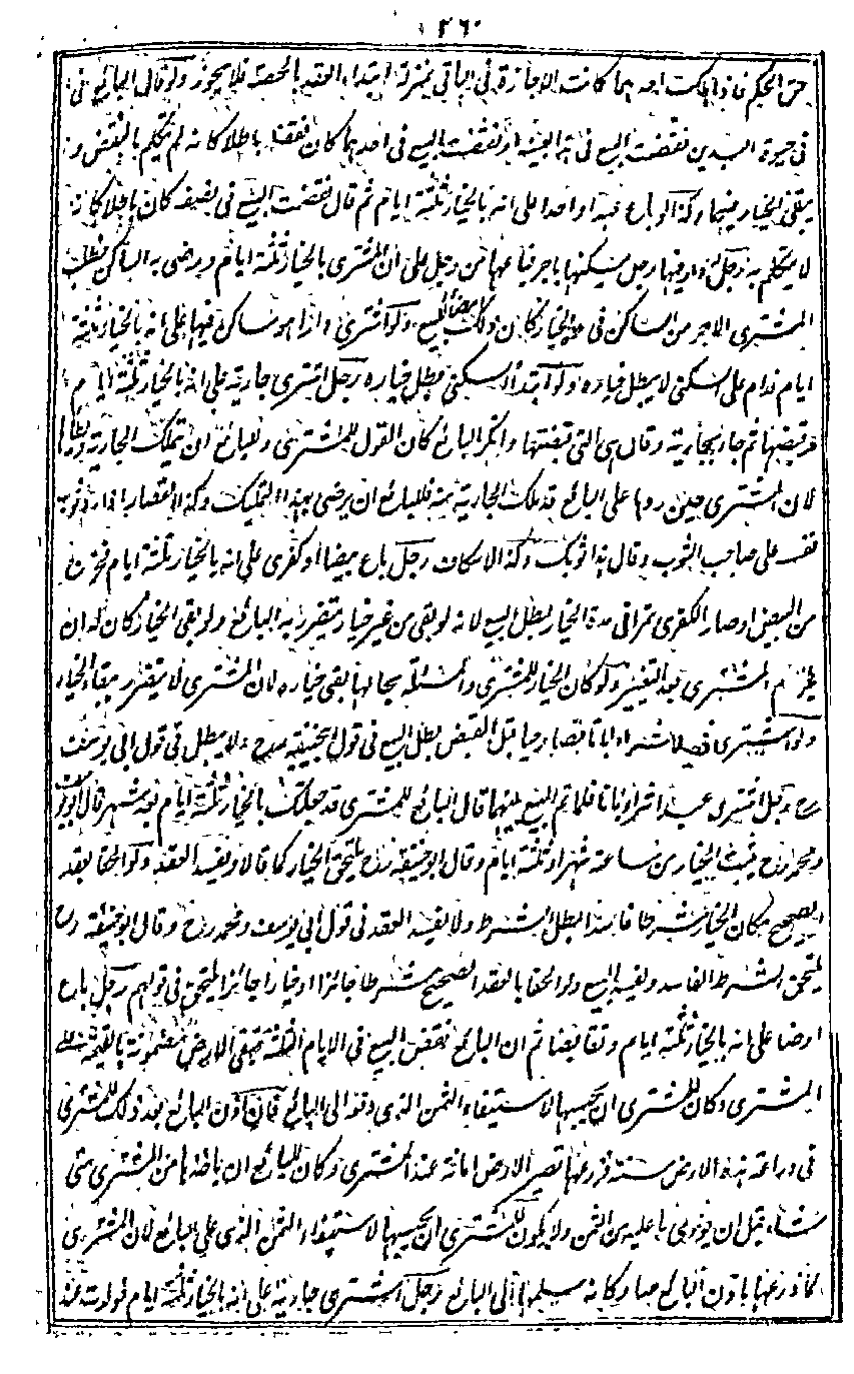 ٢٦٠
حق الحكم فاذا هلكت احدهما كانت الاجازة فى الباقى بمنزلة ابتداء العقد بالحصة فلا يجوز ولو قال البائع فى
فى حيوة العبدين نقضت البيع فى هذا بعينه او نقضت البيع فى احدهما كان نقضه باطلا كانه لم يتكلم بالنقض و
يبقى الخيار فيهما وكذا لو باع عبدا واحدا على انه بالخيار ثلثة ايام ثم قال نقضت البيع فى نصفه كان باطلا كانه
لا يتكلم به رجل له دار وفيها رجل يسكنها باجر فباعها من رجل على ان المشترى بالخيار ثلثة ايام ورضى به الساكن فطلب
المشترى الاجر من الساكن فى مدة الخيار كان ذلك امضاء للبيع ولو اشترى دارا هو ساكن فيها على انه بالخيار ثلثة
ايام فدام على السكنى لا يبطل خياره ولو ابتدأ السكنى بطل خياره رجل اشترى جارية على انه بالخيار ثلثة ايام
فقبضها ثم جاء بجارية وقال هى التى قبضتها وانكر البائع كان القول للمشترى وللبائع ان يتملك الجارية ويطأها
لان المشترى حين ردها على البائع قد ملك الجارية منه فللبائع ان يرضى بهذا التمليك وكذا القصار اذا رد ثوب
نفسه على صاحب الثوب وقال هذا ثوبك وكذا الاسكاف رجل باع بيضا او كفرى على انه بالخيار ثلثة ايام فخرج
من البيض او صار الكفرى تمرا فى مدة الخيار بطل البيع لانه لو بقى من غير خيار يتضرر به البائع ولو بقى الخيار كان له ان
يلزم المشترى بعد التغيير ولو كان الخيار للمشترى والمسئلة بحالها بقى خياره لان المشترى لا يتضرر ببقاء الخيار
ولو اشترى فصيلا شراء باتا فصار حبا قبل القبض بطل البيع فى قول ابيحنيفة رح ولا يبطل فى قول ابى يوسف
رح رجل اشترى عبدا شراء باتا فلما تم البيع بينهما قال البائع للمشترى قد جعلتك بالخيار ثلثة ايام بعد شهر قال ابو يوسف
ومحمد رح يثبت الخيار من ساعته شهرا وثلثة ايام وقال ابو حنيفة رح يلتحق الخيار كما قالا ويفسد العقد ولو الحقا بعقد
الصحيح مكان الخيار شرطا فاسدا بطل الشرط ولا يفسد العقد فى قول ابى يوسف ومحمد رح وقال ابو حنيفة رح
يلتحق الشرط الفاسد ويفسد البيع ولو الحقا بالعقد الصحيح شرطا جائزا او خيارا جائزا يلتحق فى قولهم رجل باع
ارضا على انه بالخيار ثلثة ايام وتقابضا ثم ان البائع نقض البيع فى الايام الثلثة تبقى الارض مضمونة بالقيمة على
المشترى وكان للمشترى ان يحبسها لاستيفاء الثمن الذى دفع الى البائع فان اذن البائع بعد ذلك للمشترى
فى زراعة هذه الارض سنة فزرعها تصير الارض امانة عند المشترى وكان للبائع ان ياخذها من المشترى متى
شاء قبل ان يؤدى ما عليه من الثمن ولا يكون للمشترى ان يحبسها لاستيفاء الثمن الذى على البائع لان المشترى
لما زرعها باذن البائع صار كانه سلمها الى البائع رجل اشترى جارية على انه بالخيار ثلثة ايام فولدت عنده